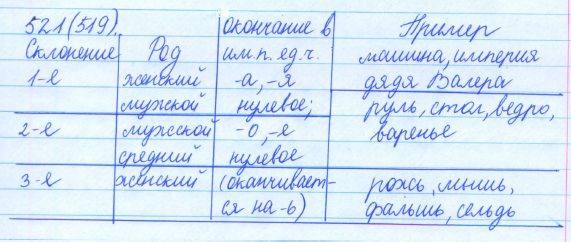 521(519).
Склонение Род окончание в им.п. ед.ч. Пример
1-е женский мужской -а, -я машина, империя дядя Валера
2-е мужской средний нулевое; -о, -е руль, стог, ведро, варенье
3-е женский нулевое (оканчивает-
ся на -ь) рожь, мышь,
фальшь, сельдь